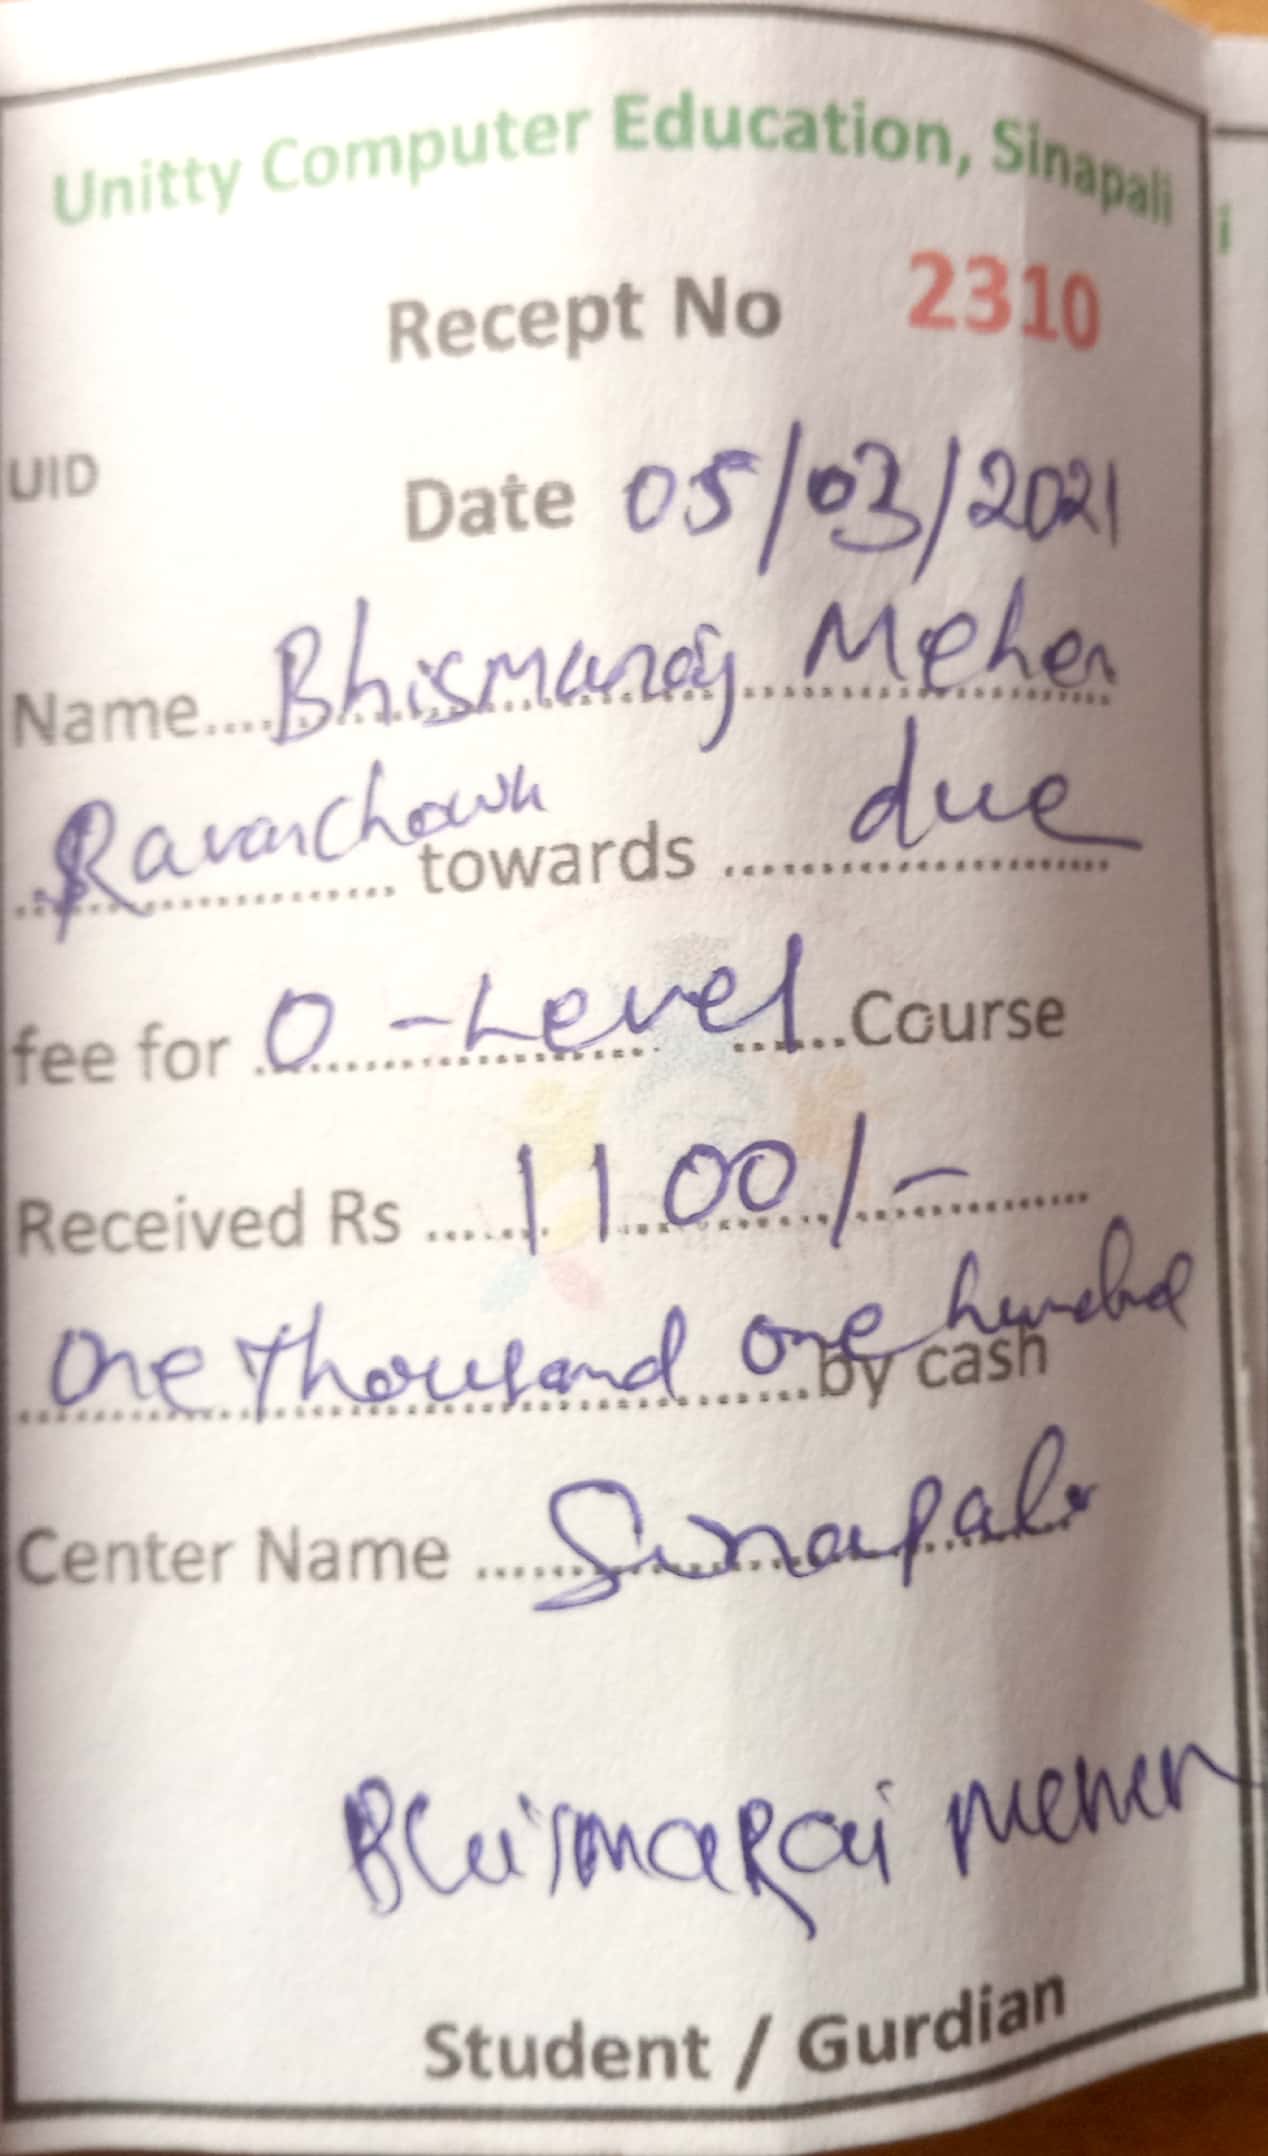 Unitty Computer Education, Sinapali
i
Recept No 2310
UID
Date 05/03/2021
Name.... Bhismaraj Meher
............ towards ............ due
fee for O-Level ......Course
Received Rs ...... 1100/-
One thousand one hundred
............by cash
Center Name ...... Sinapali
BhismaRaj Meher
Student / Gurdian